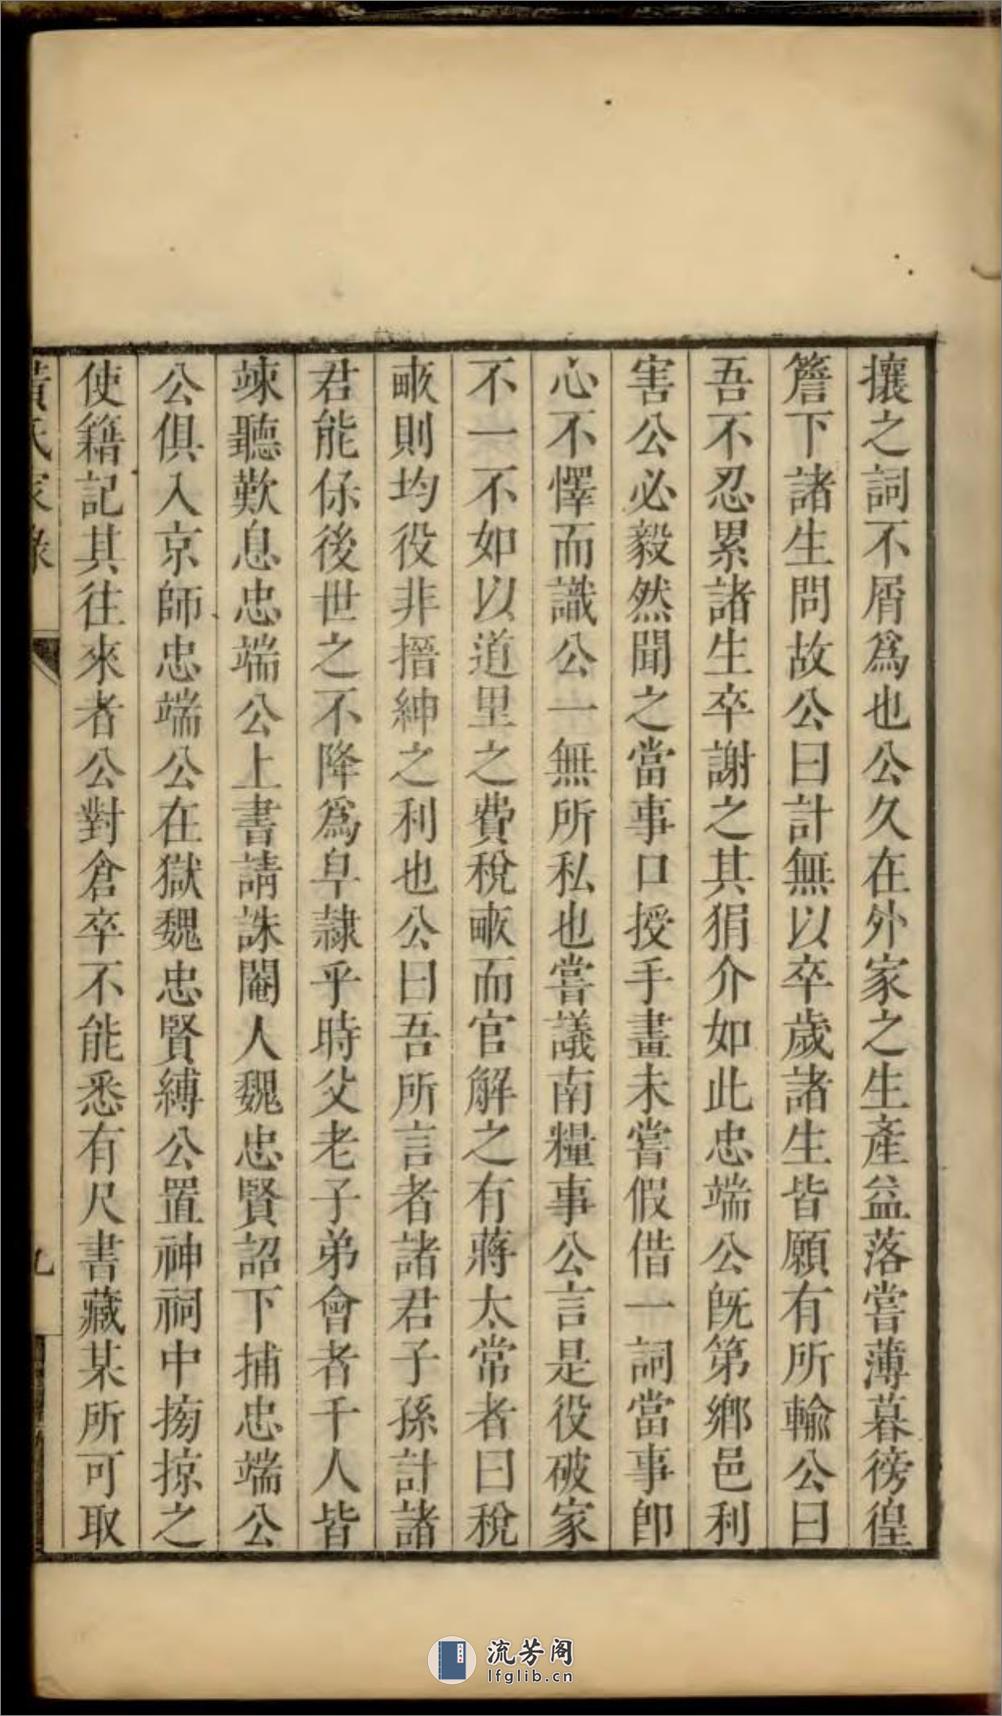 攘之詞不屑爲也公久在外家之生產益落嘗薄暮徬徨
簷下諸生問故公曰計無以卒歲諸生皆願有所輸公曰
吾不忍累諸生卒謝之其狷介如此忠端公旣第鄉邑利
害公必毅然聞之當事口授手畫未嘗假借一詞當事卽
心不懌而識公一無所私也嘗議南糧事公言是役破家
不一不如以道里之費稅畝而官解之有蔣太常者曰稅
畝則均役非搢紳之利也公曰吾所言者諸君子孫計諸
君能保後世之不降爲皁隷乎時父老子弟會者千人皆
竦聽歎息忠端公上書請誅閹人魏忠賢詔下捕忠端公
公俱入京師忠端公在獄魏忠賢縛公置神祠中搒掠之
使籍記其往來者公對倉卒不能悉有尺書藏某所可取
黃氏家錄
九
流芳阁
lfglib.cn